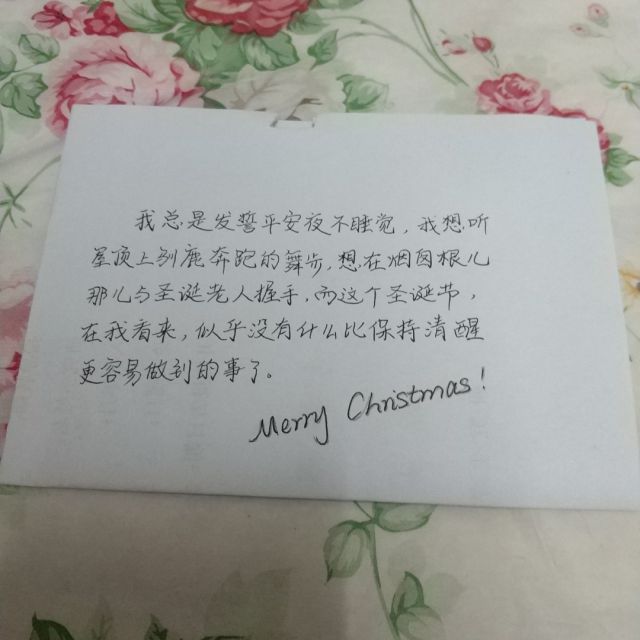 我总是发誓平安夜不睡觉，我想听
屋顶上驯鹿奔跑的舞步，想在烟囱根儿
那儿与圣诞老人握手，而这个圣诞节，
在我看来，似乎没有什么比保持清醒
更容易做到的事了。
Merry Christmas!